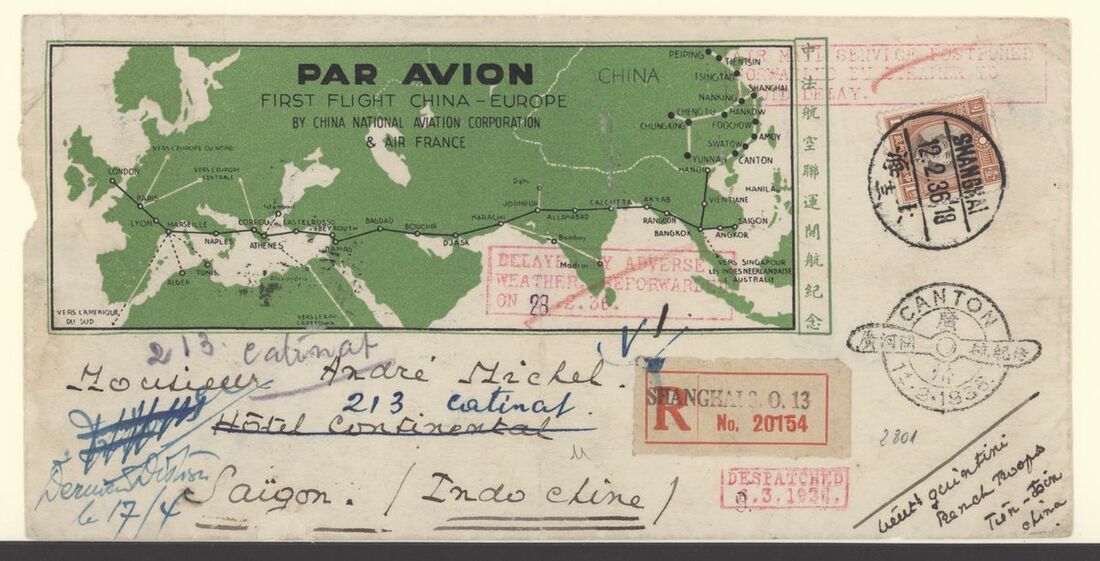 PAR AVION
FIRST FLIGHT CHINA - EUROPE
BY CHINA NATIONAL AVIATION CORPORATION
& AIR FRANCE
CHINA
PEIPING
TIENTSIN
TSINGTAO
SHANGHAI
NANKING
CHENGTU
HANKOW
CHUNGKING
FOOCHOW
AMOY
SWATOW
YUNNAN
CANTON
HANOI
MANILA
VERS L'EUROPE DU NORD
VERS L'EUROPE
CENTRALE
LONDON
PARIS
LYON
MARSEILLE
NAPLES
CORFOU
ATHENES
CASTELROSSO
Istambul
BEYROUTH
DAMAS
BAGDAD
BOUCHIR
DJASK
KARACHI
JODHPUR
Delhi
ALLAHABAD
CALCUTTA
AKYAB
RANGOON
BANGKOK
VIENTIANE
SAIGON
ANGKOR
Bombay
Madras
ALGER
TUNIS
Alexandrie
VERS SINGAPOUR
LES INDES NEERLANDAISE
& AUSTRALIE
VERS L'AMERIQUE
DU SUD
VERS LE CAP
CAPETOWN
中法航空聯運開航紀念
AIR MAIL SERVICE POSTPONED
FORWARDED BY STEAMER TO
AVOID DELAY.
DELAYED BY ADVERSE
WEATHER REFORWARDED
ON 28.2.36.
SHANGHAI
12.2.36.18
上海
CANTON
廣
1936
213. Catinat
V 1
Monsieur André Michel.
213 Catinat.
Hôtel Continental
Saïgon. / (Indo chine)
le 17/4
R
SHANGHAI S. O. 13
No. 20154
DESPATCHED
9.3.1936.
2801
china